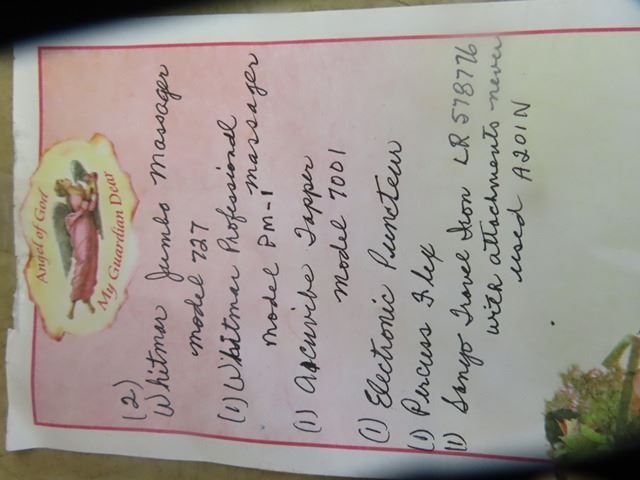 Angel of God
My Guardian Dear
(2)
Whitmar Jumbo Massager
Model 727
(1) Whitmar Professional
Model PM-1 Massager
(1) Accuvibe Tapper
Model 7001
(1) Electronic Puncteur
(1) Percuss Flex
(1) Sanyo Travel Iron LR 578776
with attachments never
used A201N